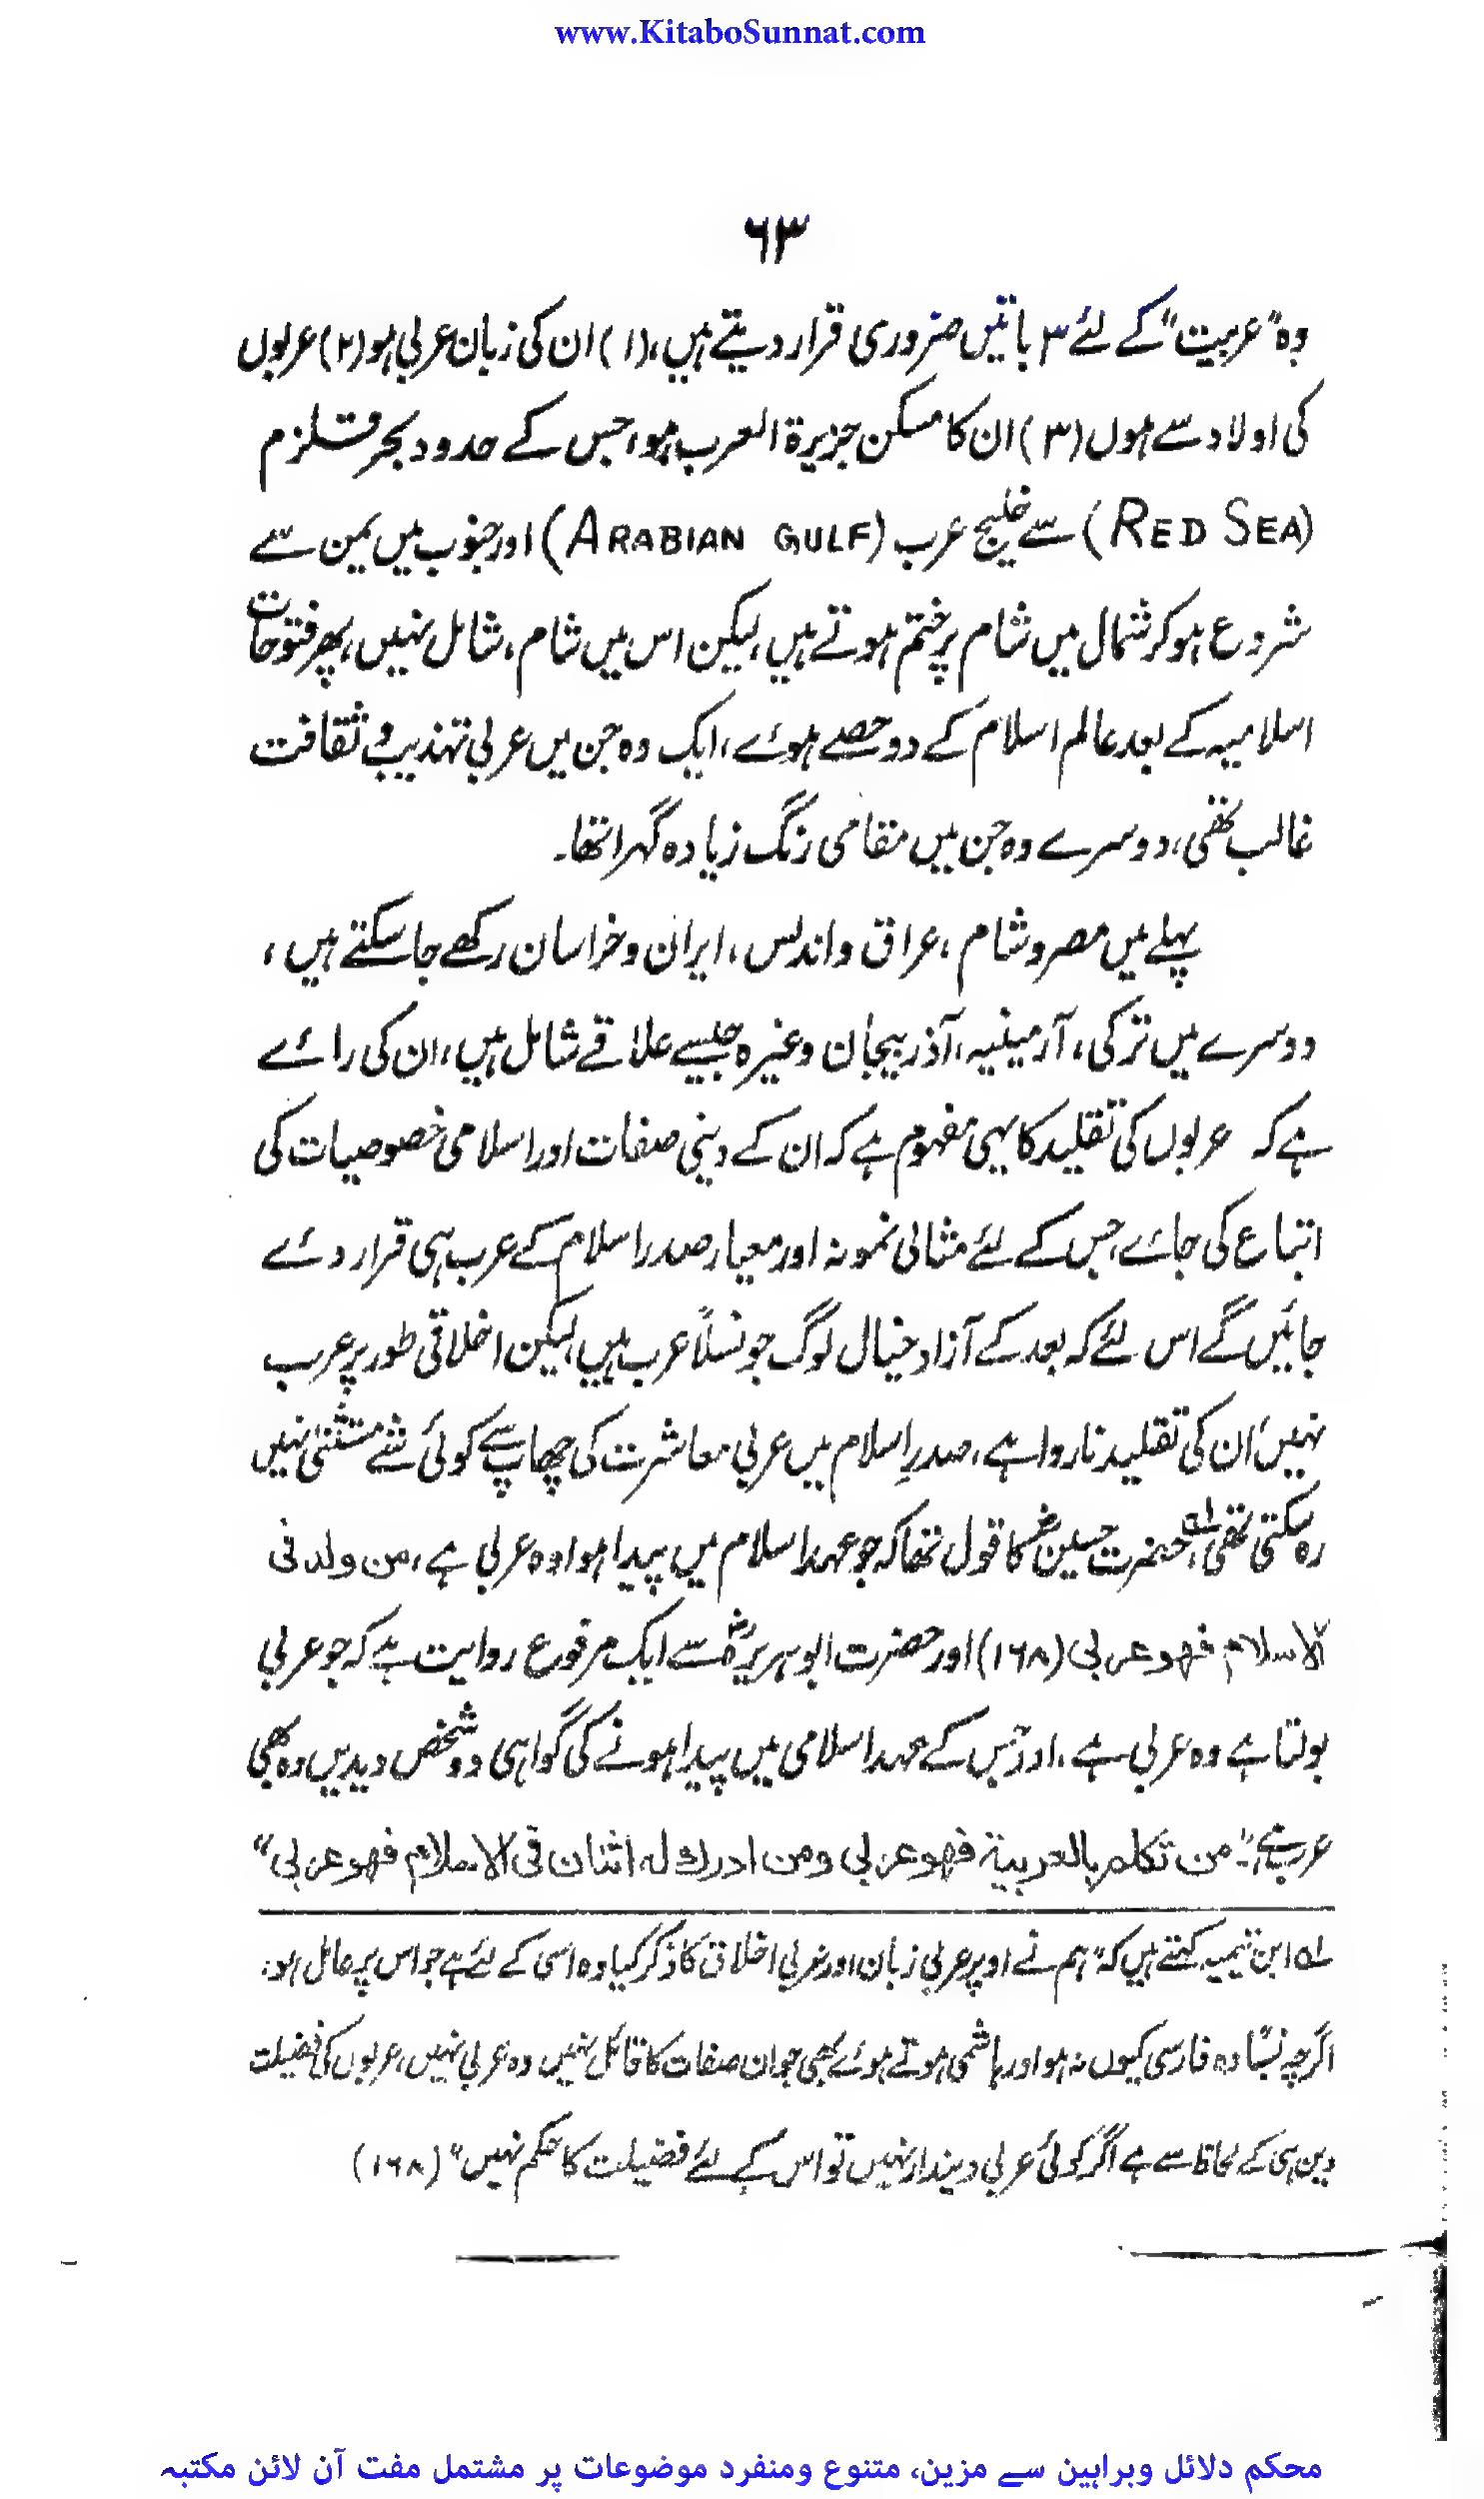 www.KitaboSunnat.com
۶۳
وہ "عربیت" کے لئے ۳ باتیں ضروری قرار دیتے ہیں، (۱) ان کی زبان عربی ہو (۲) عربوں
کی اولاد سے ہوں (۳) ان کا مسکن جزیرۃ العرب ہو، جس کے حدود بحر قلزم
(RED SEA) سے خلیج عرب (ARABIAN GULF) اور جنوب میں یمن سے
شروع ہو کر شمال میں شام پر ختم ہوتے ہیں، لیکن اس میں شام، شامل نہیں، پھر فتوحات
اسلامیہ کے بعد عالم اسلام کے دو حصے ہوئے، ایک وہ جن میں عربی تہذیب و ثقافت
غالب تھی، دوسرے وہ جن میں مقامی رنگ زیادہ گہرا تھا۔
پہلے میں مصر و شام، عراق و اندلس، ایران و خراسان رکھے جا سکتے ہیں،
دوسرے میں ترکی، آرمینیہ، آذربیجان وغیرہ جیسے علاقے شامل ہیں، ان کی رائے
ہے کہ عربوں کی تقلید کا یہی مفہوم ہے کہ ان کے دینی صفات اور اسلامی خصوصیات کی
اتباع کی جائے، جس کے لئے مثالی نمونہ اور معیار صدر اسلام کے عرب ہی قرار دئے
جائیں گے اس لئے کہ بعد کے آزاد خیال لوگ جو نسلاً عرب ہیں، لیکن اخلاقی طور پر عرب
نہیں، ان کی تقلید ناروا ہے، صدرِ اسلام میں عربی معاشرت کی چھاپ سے کوئی شئے مستثنیٰ نہیں
رہ سکتی تھی، لہ حضرت حسینؓ کا قول تھا کہ جو عہد اسلام میں پیدا ہوا وہ عربی ہے، من ولد فی
الاسلام فهو عربی (۱۶۸) اور حضرت ابوہریرہؓ سے ایک مرفوع روایت ہے کہ جو عربی
بولتا ہے وہ عربی ہے، اور جس کے عہد اسلامی میں پیدا ہونے کی گواہی دو شخص دیدیں وہ بھی
عرب ہے، "من تکلم بالعربیة فهو عربی ومن ادرك له اثنان فی الاسلام فهو عربی"
لہ ابن تیمیہ کہتے ہیں کہ "ہم نے اوپر عربی زبان اور عربی اخلاق کا ذکر کیا وہ اسی کے لئے ہے جو اس پر عامل ہو،
اگرچہ نسبًا وہ فارسی کیوں نہ ہو اور ہاشمی ہوتے ہوئے بھی جو ان صفات کا قائل نہیں وہ عربی نہیں، عربوں کی فضیلت
دین ہی کے لحاظ سے ہے اگر کوئی عربی دیندار نہیں تو اس کے لئے فضیلت کا حکم نہیں" (۱۶۸)
محکم دلائل وبراہین سے مزین، متنوع ومنفرد موضوعات پر مشتمل مفت آن لائن مکتبہ